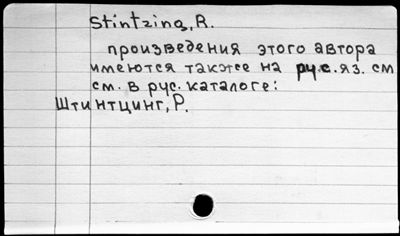 Stintzing, R.
произведения этого автора
имеются также на рус. яз. см
см. в рус. каталоге:
Штинтцинг, Р.